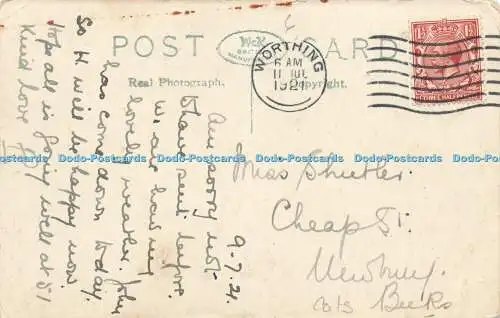 POST CARD
W&K
BRITISH
MANUFACTURE
Real Photograph.
Copyright.
WORTHING
6 AM
11 JUL
192
9-7-21.
Am sorry not
to have sent before.
We are having
lovely weather. John
has come down today.
So H will be happy now.
Hope all is going well at 51
Kind love
Miss Shutler
Cheap St.
Newbury
Berks
Dodo-Postcards Dodo-Postcards Dodo-Postcards Dodo-Postcards Dodo-Postcards Dodo-Postcards